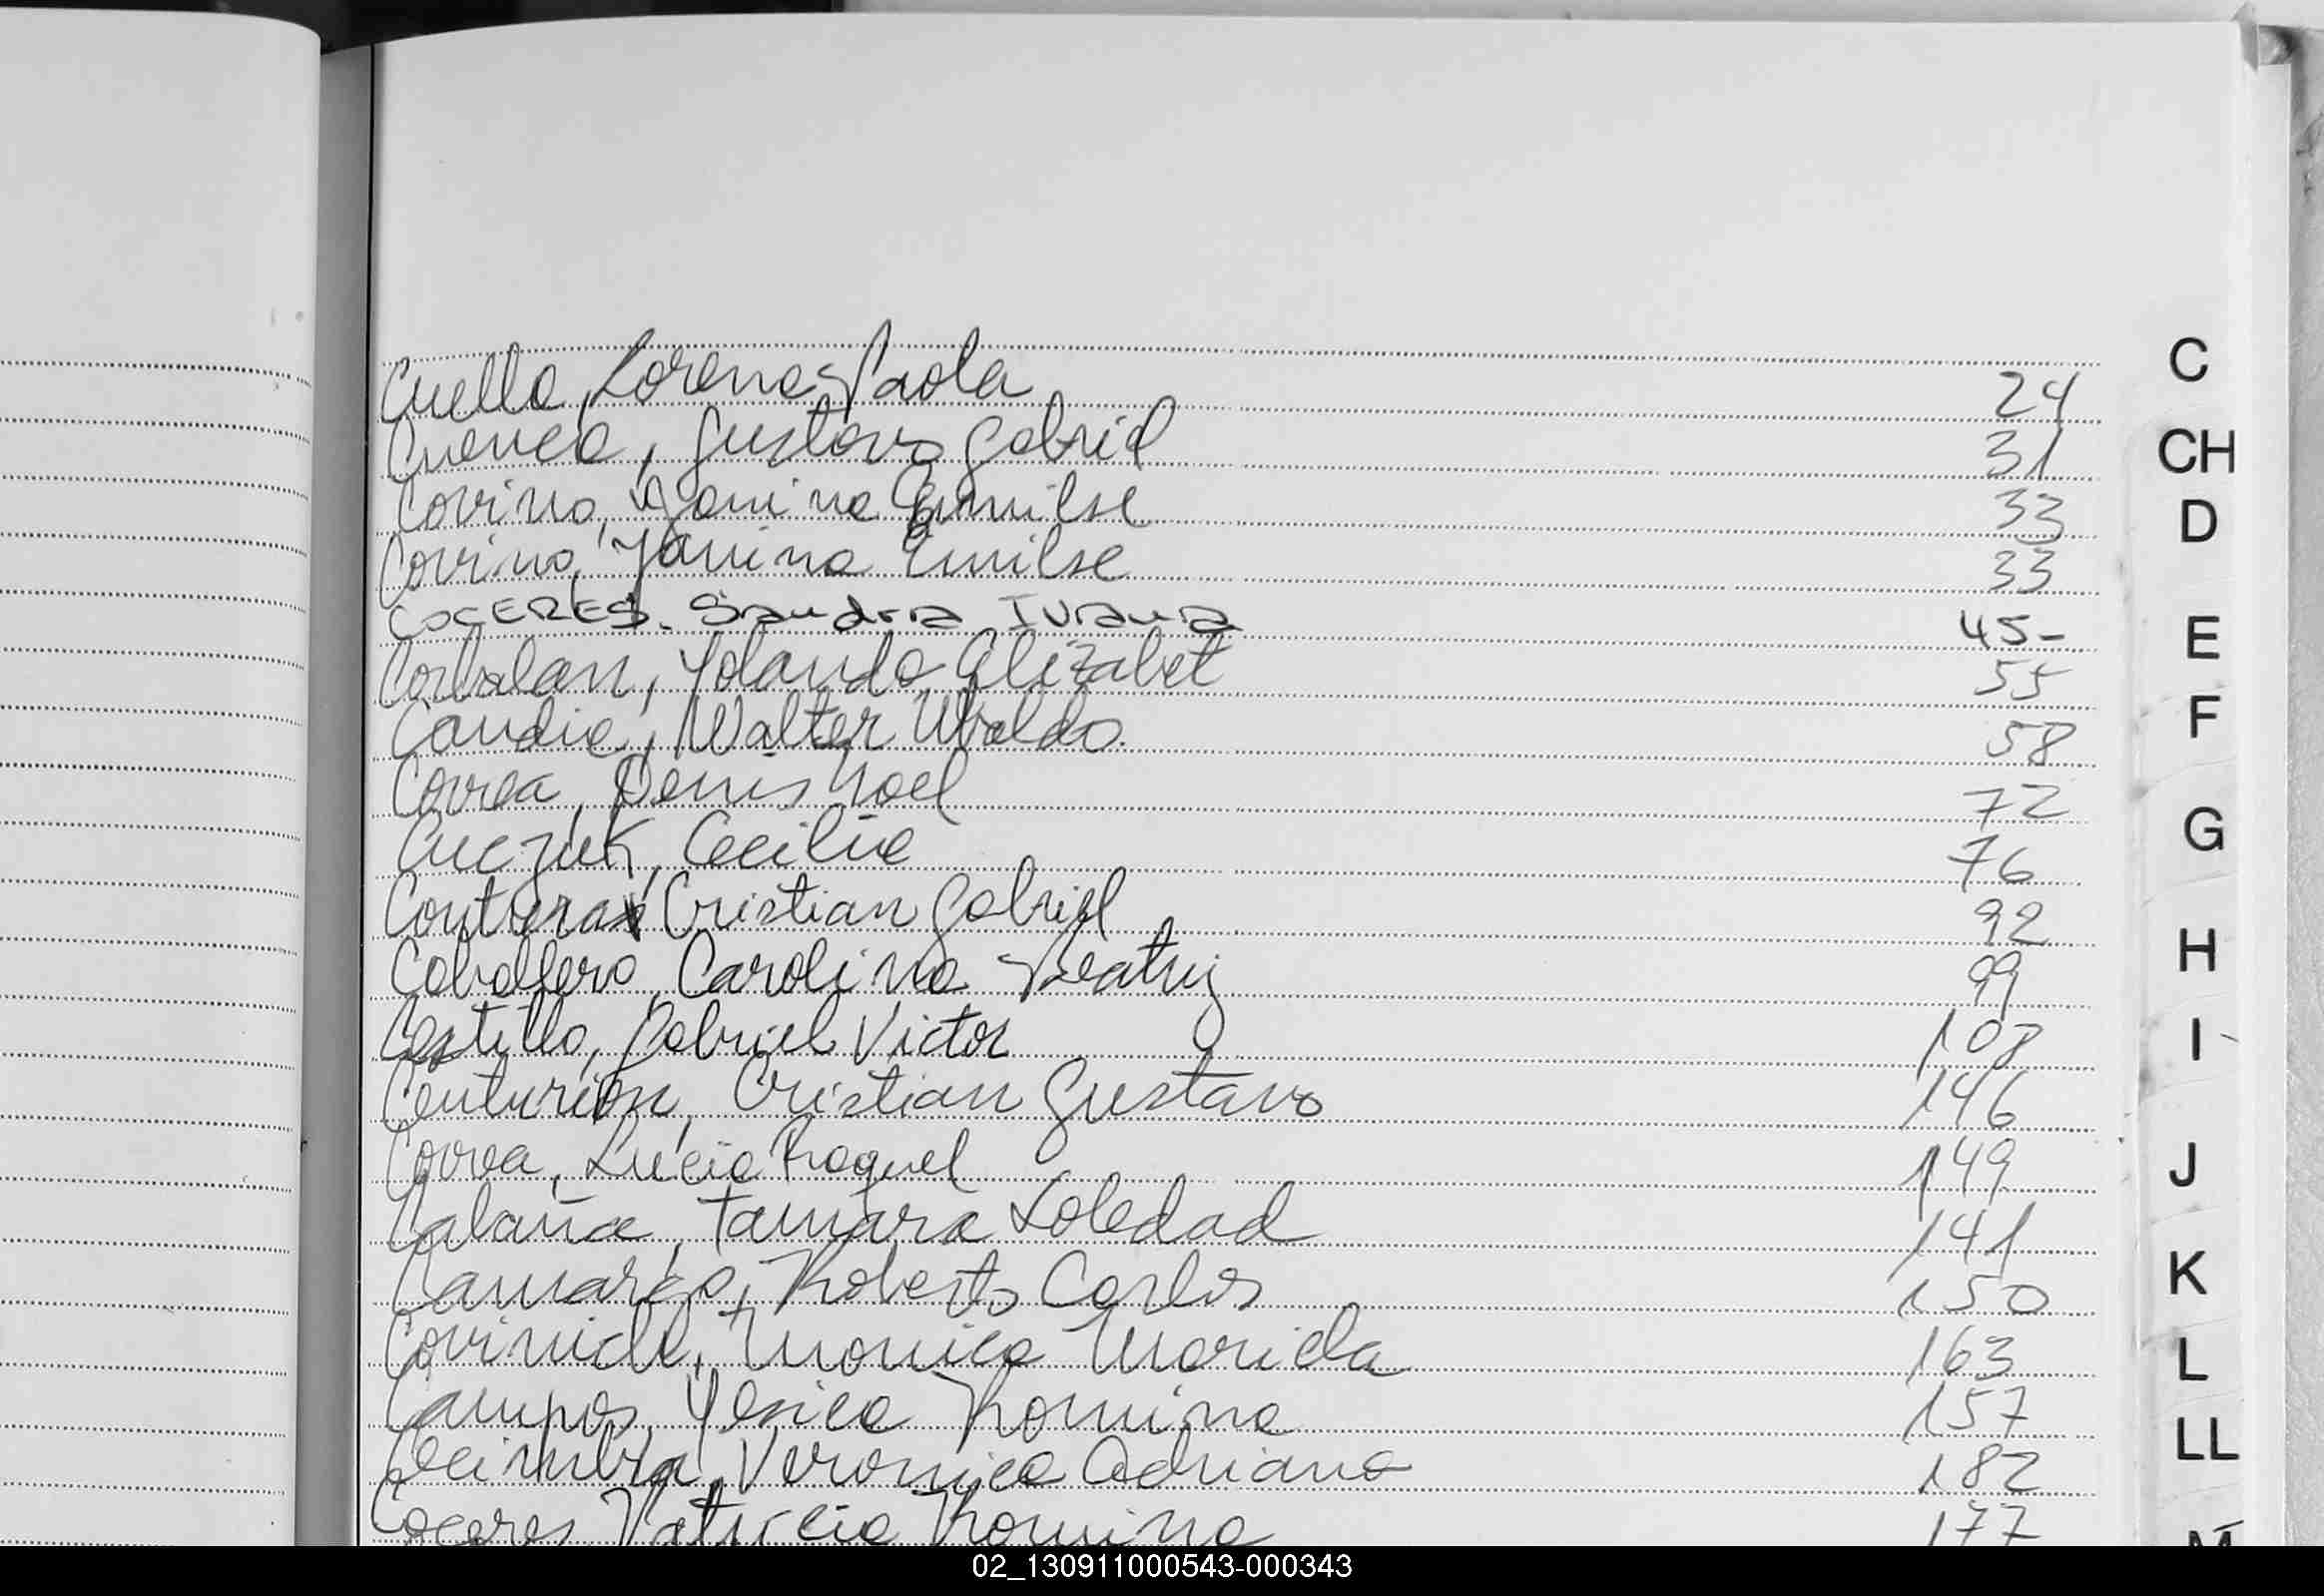 Cuella, Lorena Paola 24
Cuenca, Gustavo Gabriel 31
Covino, Yanina Emilse 33
Covino, Yanina Emilse 33
COCERES. Sandra Ivana 45-
Corbalan, Yolanda Elizabet 55
Candia, Walter Ubaldo. 58
Correa, Denis Noel 72
Cuczuk, Cecilia 76
Contreras Cristian Gabriel 92
Caballero, Carolina Beatriz 99
Castillo, Gabriel Victor 108
Centurion, Cristian Gustavo 146
Correa, Lucia Raquel 149
Tamara Soledad 141
Camargo, Roberto Carlos 150
Monica Mariela 163
Campos, Yesica Romina 157
Veronica Adriana 182
Coceres Patricia Romina 177
C
CH
D
E
F
G
H
I
J
K
L
LL
M
02_130911000543-000343